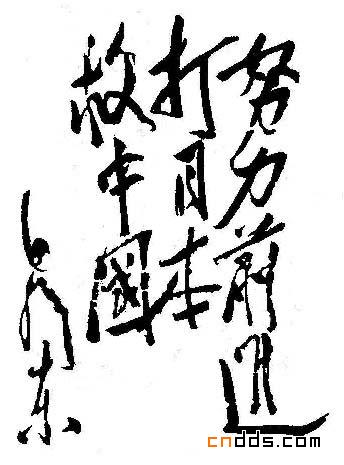 努力前进
打日本
救中國
毛泽东
cndds.com